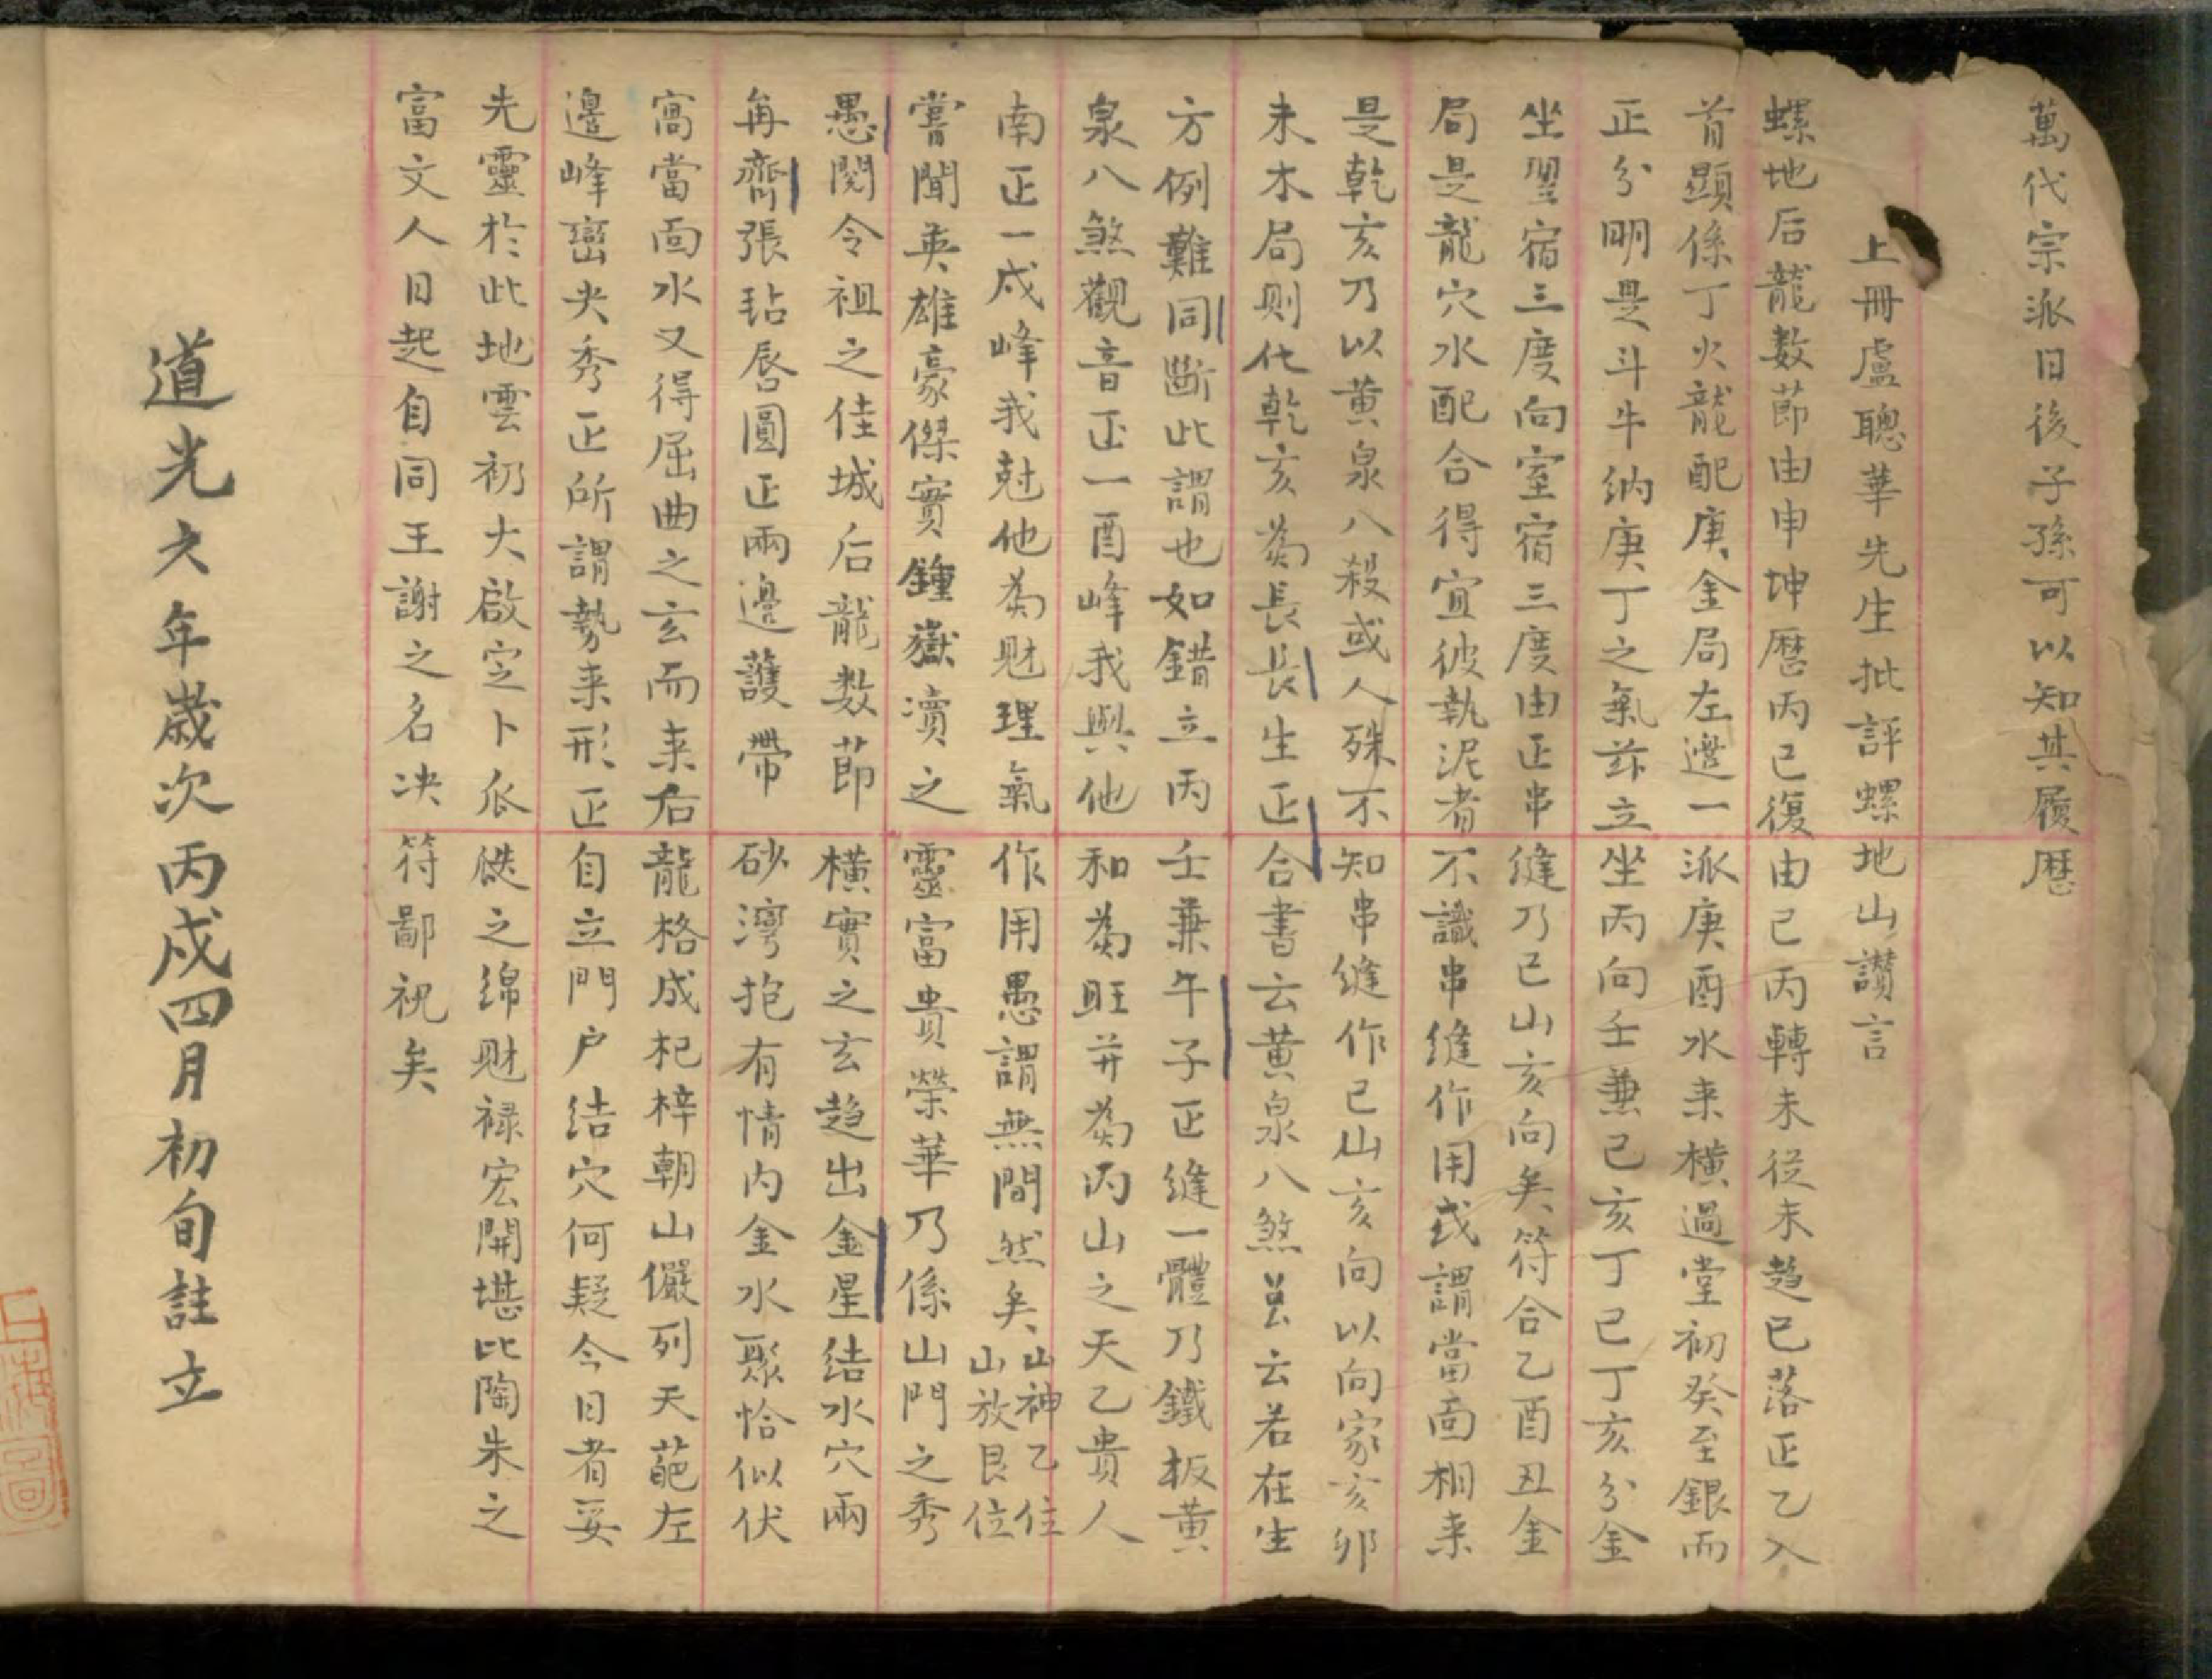 萬代宗派日後子孫可以知其履曆
上冊盧聰華先生批評螺地山讚言
螺地后龍数節由申坤曆丙已復由已丙轉未從未趋已落正乙入
首顯係丁火龍配庚金局左邊一派庚酉水来橫過堂初癸至銀而
正分明是斗牛納庚丁之氣茲立坐丙向壬兼已亥丁已丁亥分金
坐翌宿三度向室宿三度由正串縫乃已山亥向矣符合乙酉丑金
局是龍穴水配合得宜彼執泥者不識串縫作用或謂當面相来
是乾亥乃以黄泉八殺或人殊不知串縫作已山亥向以向家亥卯
未木局则化乾亥為長長生正合書云黄泉八煞訣云若在生
方例難同断此謂也如錯立丙壬兼午子正縫一體乃鐵板黄
泉八煞觀音正一酉峰我與他和為旺并為丙山之天乙貴人
南正一戍峰我尅他為财理氣作用愚謂無間然矣山神乙位山放艮位
嘗聞英雄豪傑實鍾嶽瀆之靈富貴榮華乃係山門之秀
愚閱令祖之佳城后龍数節橫實之玄趋出金星结水穴兩
角齊張毡唇圓正兩邊護帶砂灣抱有情内金水聚恰似伏
窩當面水又得屈曲之玄而来右龍格成杞梓朝山儼列天葩左
邊峰巒尖秀正所謂勢来形正自立門户结穴何疑今日者妥
先靈於此地雲礽大啟定卜瓜瓞之绵财禄宏開堪比陶朱之
富文人日起自同王謝之名决符鄙祝矣
道光六年歲次丙戍四月初旬註立